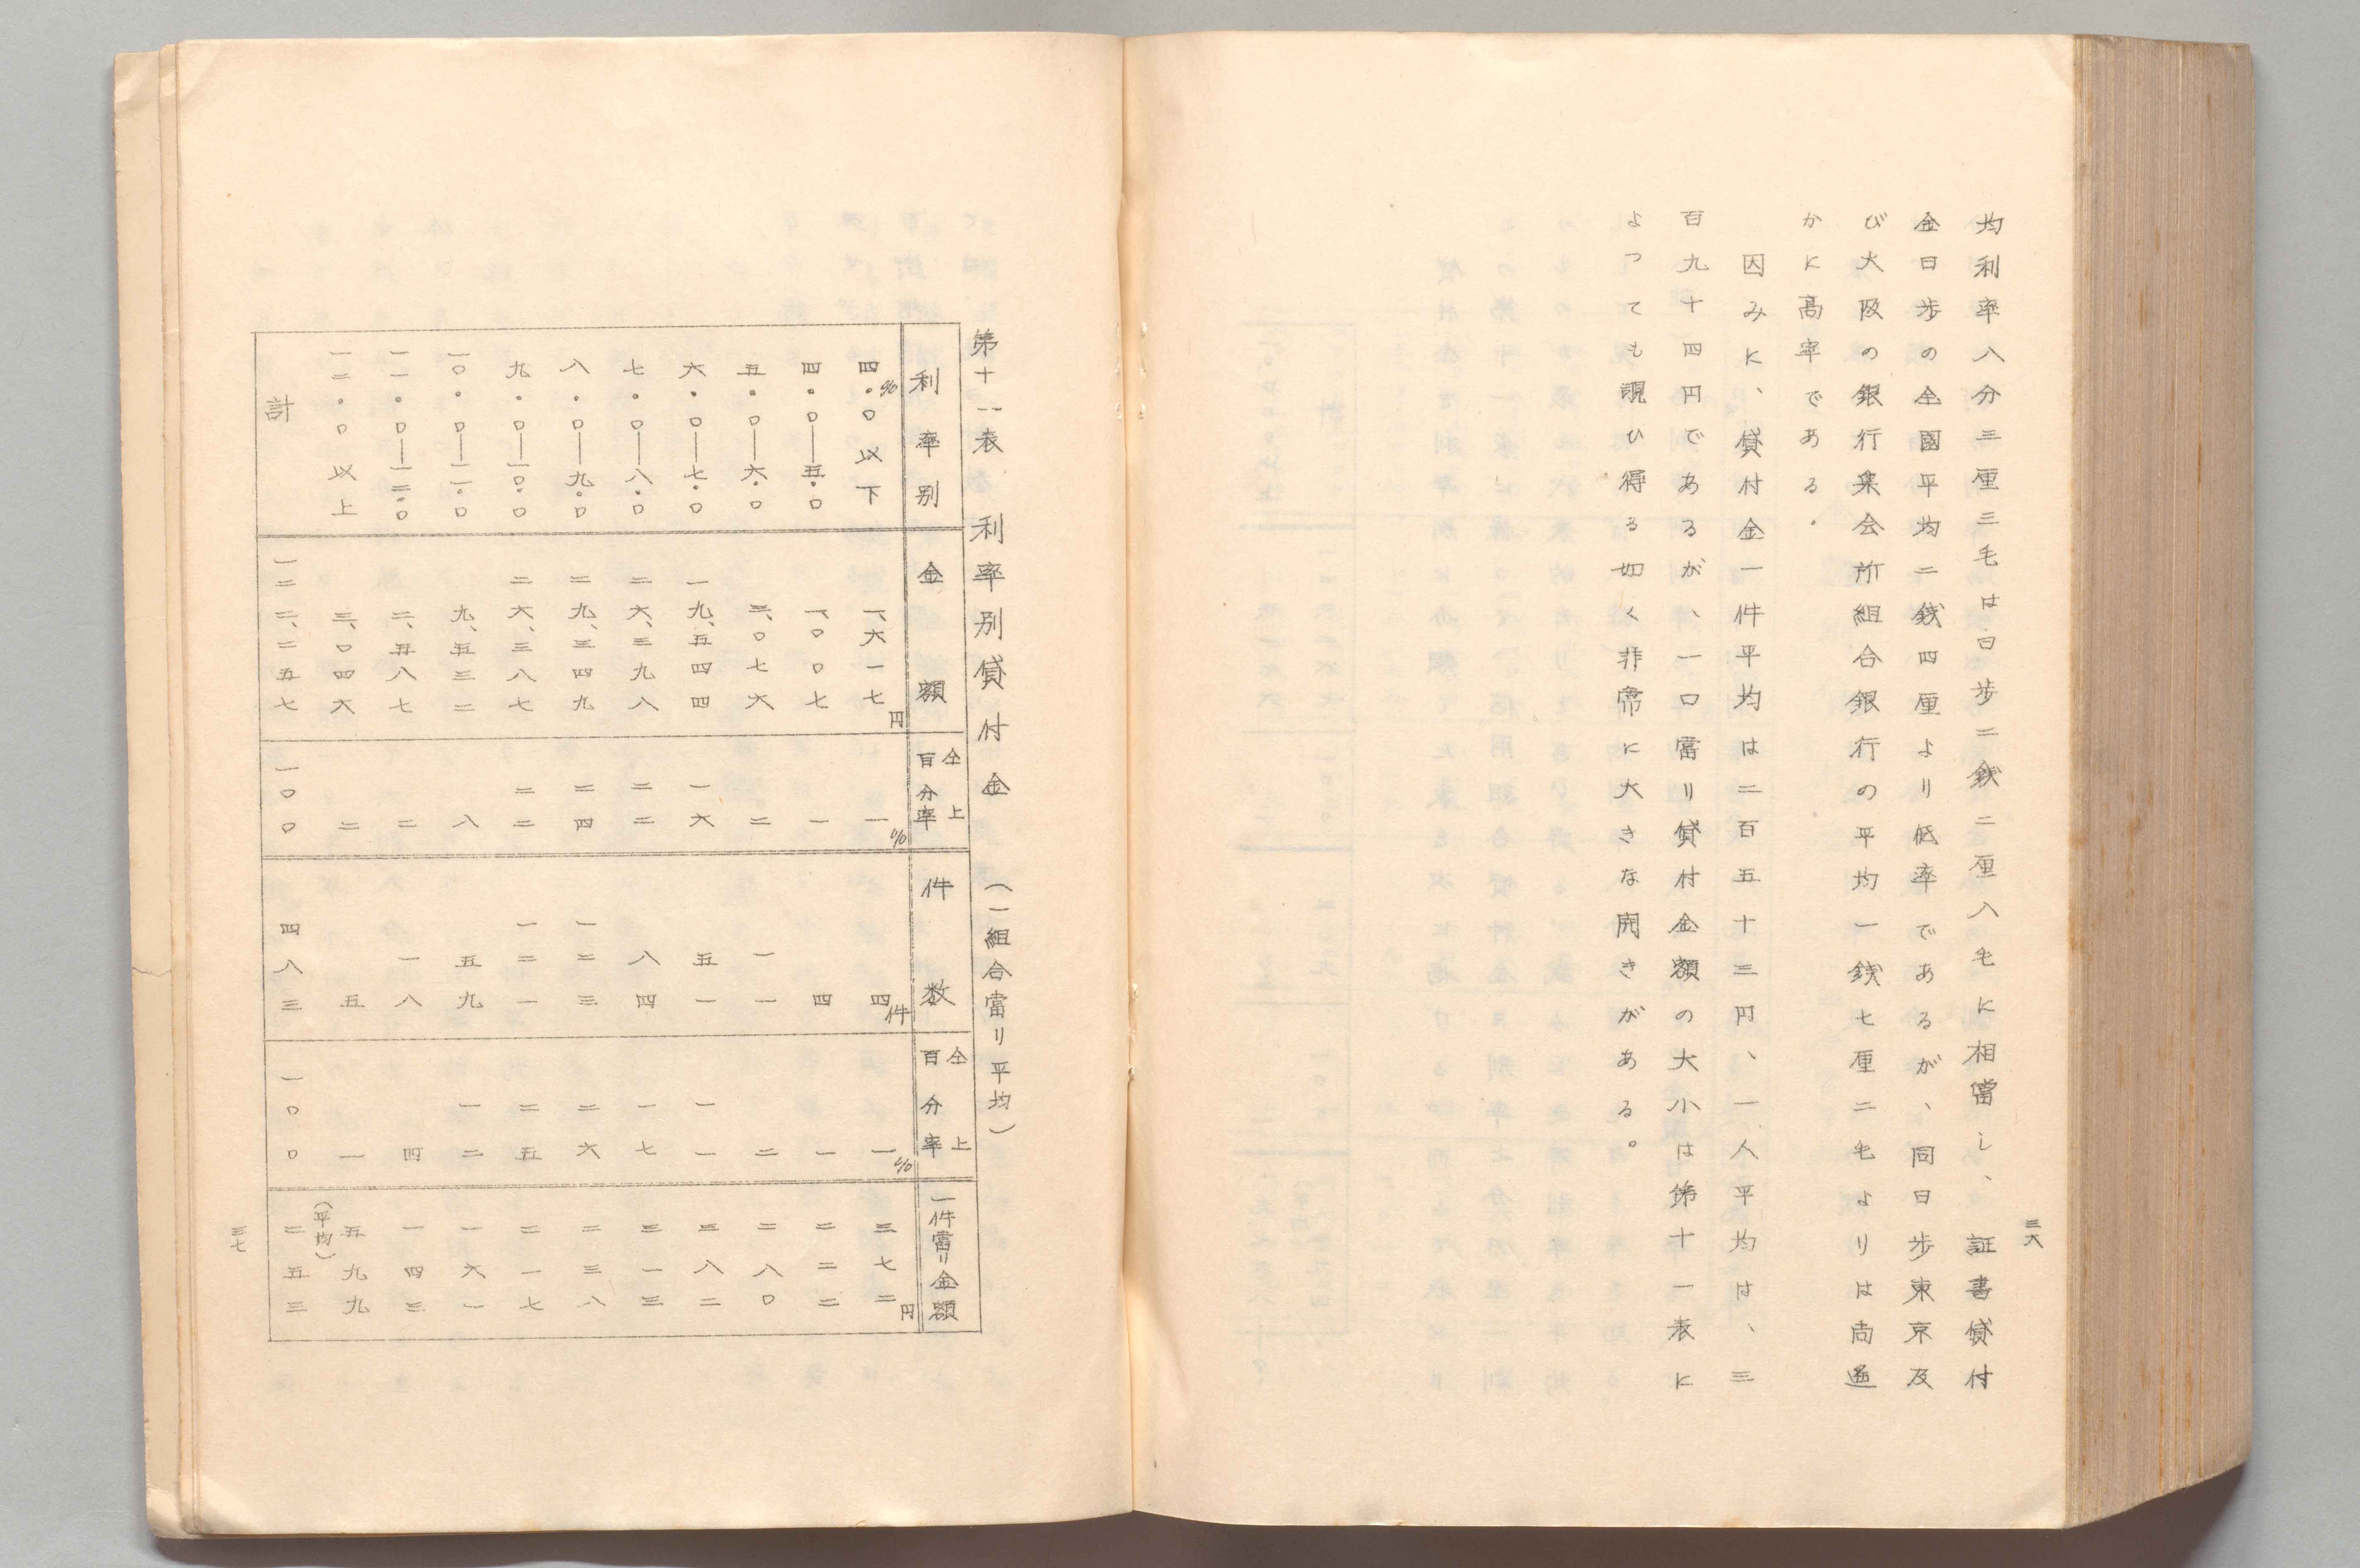 三六
均利率八分三厘三毛は日歩二銭二厘八毛に相當し、証書貸付
金日歩の全國平均二銭四厘より低率であるが、同日歩東京及
び大阪の銀行集会所組合銀行の平均一銭七厘二毛よりは尚遥
かに高率である。
因みに、貸付金一件平均は二百五十三円、一人平均は、三
百九十四円であるが、一口當り貸付金額の大小は第十一表に
よっても覗ひ得る如く非常に大きな開きがある。
第十一表 利率別貸付金 (一組合當り平均)
利率別 金額 仝上百分率 件数 仝上百分率 一件當り金額
四・〇%以下 一、六一七円 一% 四件 一% 三七二円
四・〇―五・〇 一、〇〇七 一 四 一 二二二
五・〇―六・〇 三、〇七六 二 一一 二 二八〇
六・〇―七・〇 一九、五四四 一六 五一 一一 三八二
七・〇―八・〇 二六、三九八 二二 八四 一七 三一三
八・〇―九・〇 二九、三四九 二四 一二三 二六 二三八
九・〇―一〇・〇 二六、三八七 二二 一二一 二五 二一七
一〇・〇―一一・〇 九、五三二 八 五九 一二 一六一
一一・〇―一二・〇 二、五八七 二 一八 四 一四三
一二・〇以上 三、〇四六 二 五 一 五九九
計 一二二、二五七 一〇〇 四八三 一〇〇 (平均) 二五三
三七